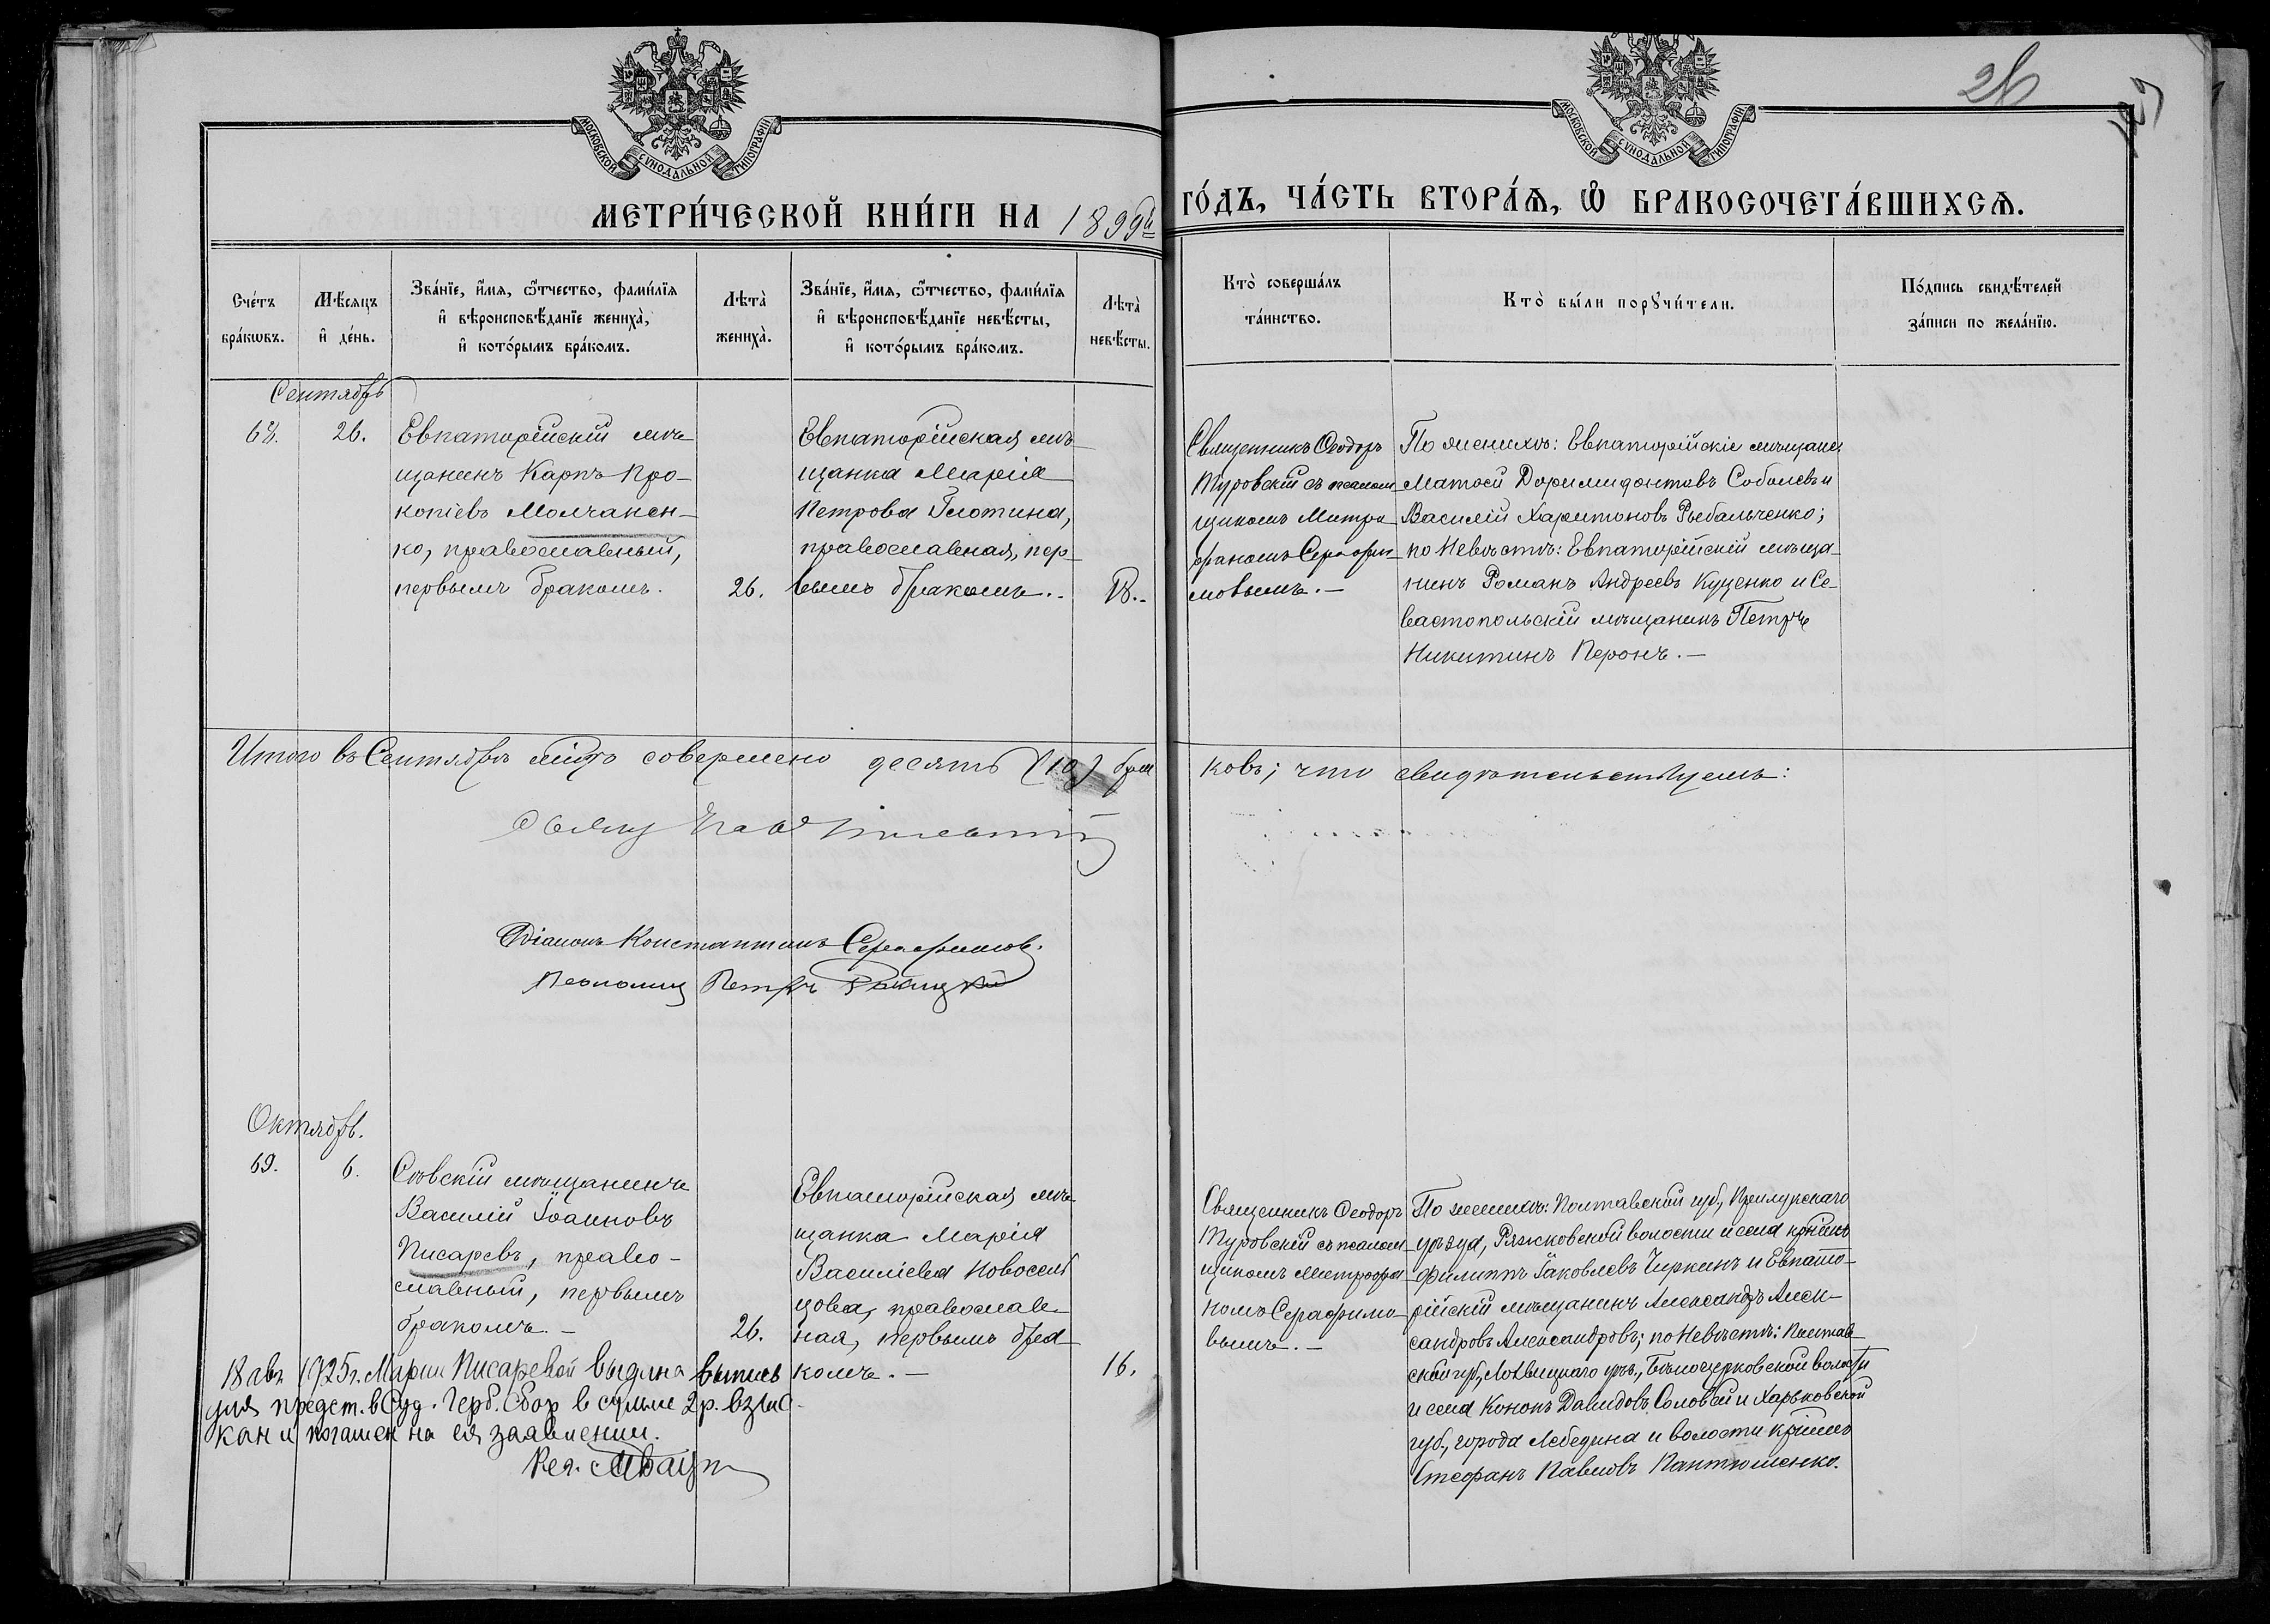 26
МОСКОВСКОЙ СѴНОДАЛЬНОЙ ТИПОГРАФІИ
МОСКОВСКОЙ СѴНОДАЛЬНОЙ ТИПОГРАФІИ
МЕТРИ́ЧЕСКОЙ КНИ́ГИ НА 1899й ГО́ДЪ, ЧА́СТЬ ВТОРА́Ѧ, Ѽ БРАКОСОЧЕТА́ВШИХСѦ.
Сче́тъ
бра́кѡвъ.
Мѣ́сяцъ
и҆ де́нь.
Зва́нїе, и҆́мѧ, ѻ҆́тчество, фами́лїѧ
и҆ вѣроисповѣ́данїе жениха̀,
и҆ кото́рымъ бра́комъ.
Лѣта̀
жениха̀.
Зва́нїе, и҆́мѧ, ѻ҆́тчество, фами́лїѧ
и҆ вѣроисповѣ́данїе невѣ́сты,
и҆ кото́рымъ бра́комъ.
Лѣта̀
невѣ́сты.
Кто̀ соверша́лъ
та́инство.
Кто̀ бы́ли порꙋчи́тели.
По́дпись свидѣ́телей
за́писи по жела́нїю.
Сентябрь
68.
26.
Евпаторійскій мѣ
щанинъ Карпъ Про-
копіевъ Молчанен-
ко, православный,
первымъ бракомъ.
26.
Евпаторійская мѣ
щанка Марія
Петрова Глотина,
православная, пер-
вымъ бракомъ.
18.
Священникъ Ѳеодоръ
Туровскій съ псалом
щикомъ Митро
фаномъ Серафи-
мовымъ.
По женихѣ: Евпаторійскіе мѣщане
Матѳей Доримидонтовъ Соболевъ и
Василій Харитоновъ Рыбальченко;
по Невѣстѣ: Евпаторійскій мѣща-
нинъ Романъ Андреевъ Куценко и Се-
вастопольскій мѣщанинъ Петръ
Никитинъ Перонъ.
Итого въ Сентябрѣ мѣсяцѣ совершено десять (10) бра ковъ; что свидѣтельствуемъ:
Діаконъ Константинъ Серафимов.
Псаломщ Петръ
Октябрь.
69.
6.
мѣщанинъ
Василій Іоанновъ
Писаревъ, право-
славный, первымъ
бракомъ.
26.
Евпаторійская мѣ
щанка Марія
Василіева Новосель
цова, православ-
ная, первымъ бра-
комъ.
16.
Священникъ Ѳеодоръ
Туровскій съ псалом
щикомъ Митрофа
номъ Серафимо-
вымъ.
По женихѣ: Полтавской губ., Прилукскаго
уѣзда, Ряжковской волости и села крестьянинъ
Филиппъ Іаковлевъ Чиркинъ и Евпато-
рійскій мѣщанинъ Александръ Алек-
сандровъ Александровъ; по Невѣстѣ: Полтав
ской губ., Лохвицкаго уѣз., Бѣлоцерковской волости
и села Кононъ Давидовъ Соловей и Харьковской
губ., города Лебедина и волости
Стефанъ Павловъ Пантюшенко.
18 авг. 1925 г. Марии Писаревой выдана выпись
для предст. в Суд. Герб. Сбор в сумме 2 р. взыс-
кан и погашен на ея заявлении.